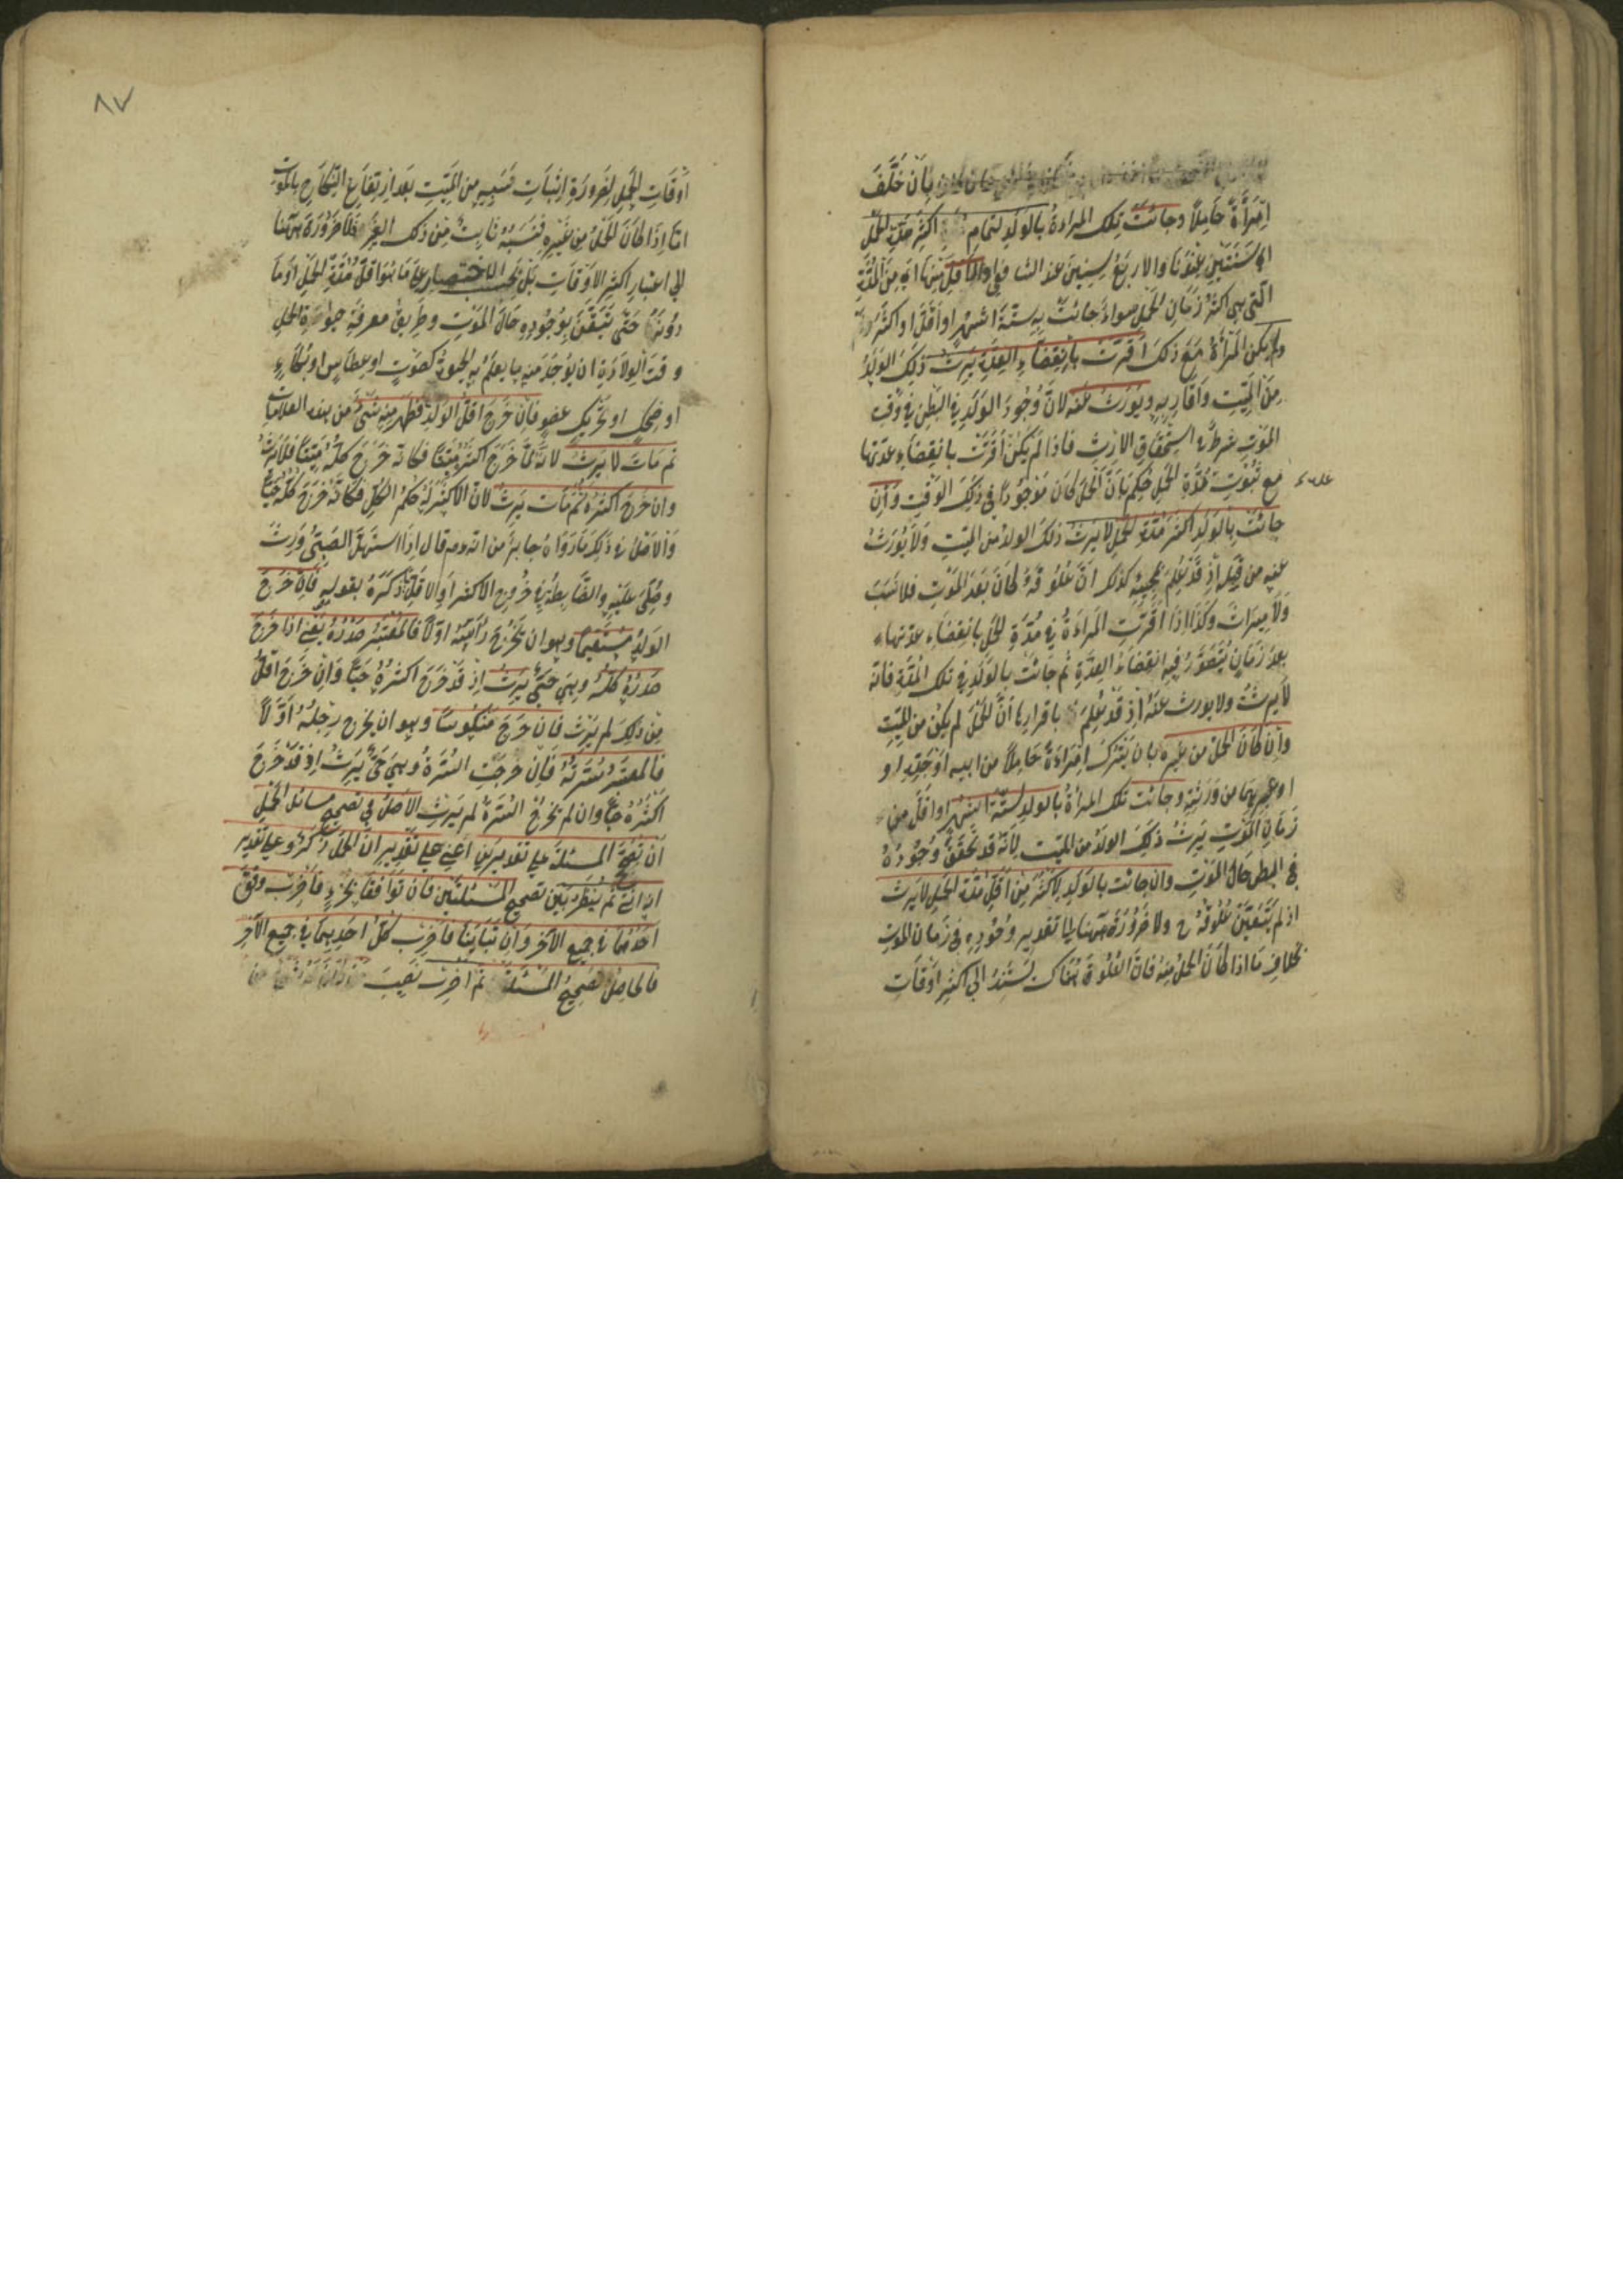 بان خلف
امرأة حاملا وجائت تلك المراءة بالولد لتمام اكثر مدة الحمل
اى سنتين عندنا والاربع سنين عند الشافعى او لاقل منها اى من المدة
التى هى اكثر زمان الحمل سواء جائت به ستة اشهر او اقل او اكثر
ولم يكن المرأة مع ذلك اقرت بانقضاء العدة يرث ذلك الولد
من الميت واقاربه ويورث عنه لان وجود الولد فى البطن فى وقت
الموت شرط استحقاق الارث فاذا لم يكن اقرت بانقضاء عدتها
مع ثبوت مدة الحمل حكم بان الحمل كان موجودا فى ذلك الوقت وان
جائت بالولد اكثر مدة الحمل لا يرث ذلك الولد من الميت ولا يورث
عنه من قبله اذ قد علم بمجيئه كذلك ان علوقه كان بعد الموت فلا نسب
ولا ميراث وكذا اذا اقرت المراءة فى مدة الحمل بانقضاء عدتها
بعد زمان يتصور فيه انقضاء العدة ثم جائت بالولد فى تلك المدة فانه
لا يرث ولا يورث عنه اذ قد علم باقرارها ان الحمل لم يكن من الميت
وان كان الحمل من غيره بان يترك امراءة حاملا من ابيه او جده او
او غيرهما من ورثته وجائت تلك المرأة بالولد لستة اشهر او اقل من
زمان الموت يرث ذلك الولد من الميت لانه قد تحقق وجوده
فى البطن حال الموت وان جائت بالولد لاكثر من اقل مدة الحمل لا يرث
اذ لم يتيقن علوقه ح ولا ضرورة ههنا الى تقدير وجوده فى زمان الموت
بخلاف ما اذا كان الحمل منه فان العلوق هناك يستند الى اكثر اوقات
٨٧
اوقات الحمل لضرورة اثبات نسبه من الميت بعد ارتفاع النكاح بالموت
اما اذا كان الحمل من غيره فنسبه ثابت من ذلك الغير فلا ضرورة ههنا
الى اعتبار اكثر الاوقات بل يجب الاختصار على ما هو اقل مدة الحمل او ما
دونها حتى يتيقن بوجوده حال الموت وطريق معرفة حيوة الحمل
وقت الولادة ان يوجد منه ما يعلم به الحيوة كصوت او عطاس او بكاء
او ضحك او تحريك عضو فان خرج اقل الولد فظهر منه شئ من هذه العلامات
ثم مات لا يرث لانه لما خرج اكثره ميتا فكانه خرج كله ميتا فلا يرث
وان خرج اكثره ثم مات يرث لان الاكثر له حكم الكل فكانه خرج كله حيا
والاصل فى ذلك ما رواه جابر من انه قال اذا استهل الصبى ورث
وصلى عليه والضابطة فى خروج الاكثر او الاقل ما ذكره بقوله فان خرج
الولد مستقيما وهو ان يخرج رأسه اولا فالمعتبر صدره يعنى اذا خرج
صدره كله وهى حتى يرث اذ قد خرج اكثره حيا وان خرج اقل
من ذلك لم يرث فان خرج منكوسا وهو ان يخرج رجله اولا
فالمعتبر سرته فان خرجت السرة وهى حى يرث اذ قد خرج
اكثره حيا وان لم تخرج السرة لم يرث الاصل فى تصحيح مسائل الحمل
ان تصحح المسئلة على تقديرين اعنى على تقدير ان الحمل ذكر وعلى تقدير
انه انثى ثم ينظر بين تصحيح المسئلتين فان توافقا بجزء فاضرب وفق
احدهما فى جميع الآخر وان تباينا فاضرب كل احديهما فى جميع الآخر
فالحاصل تصحيح المسئلة ثم اضرب نصيب